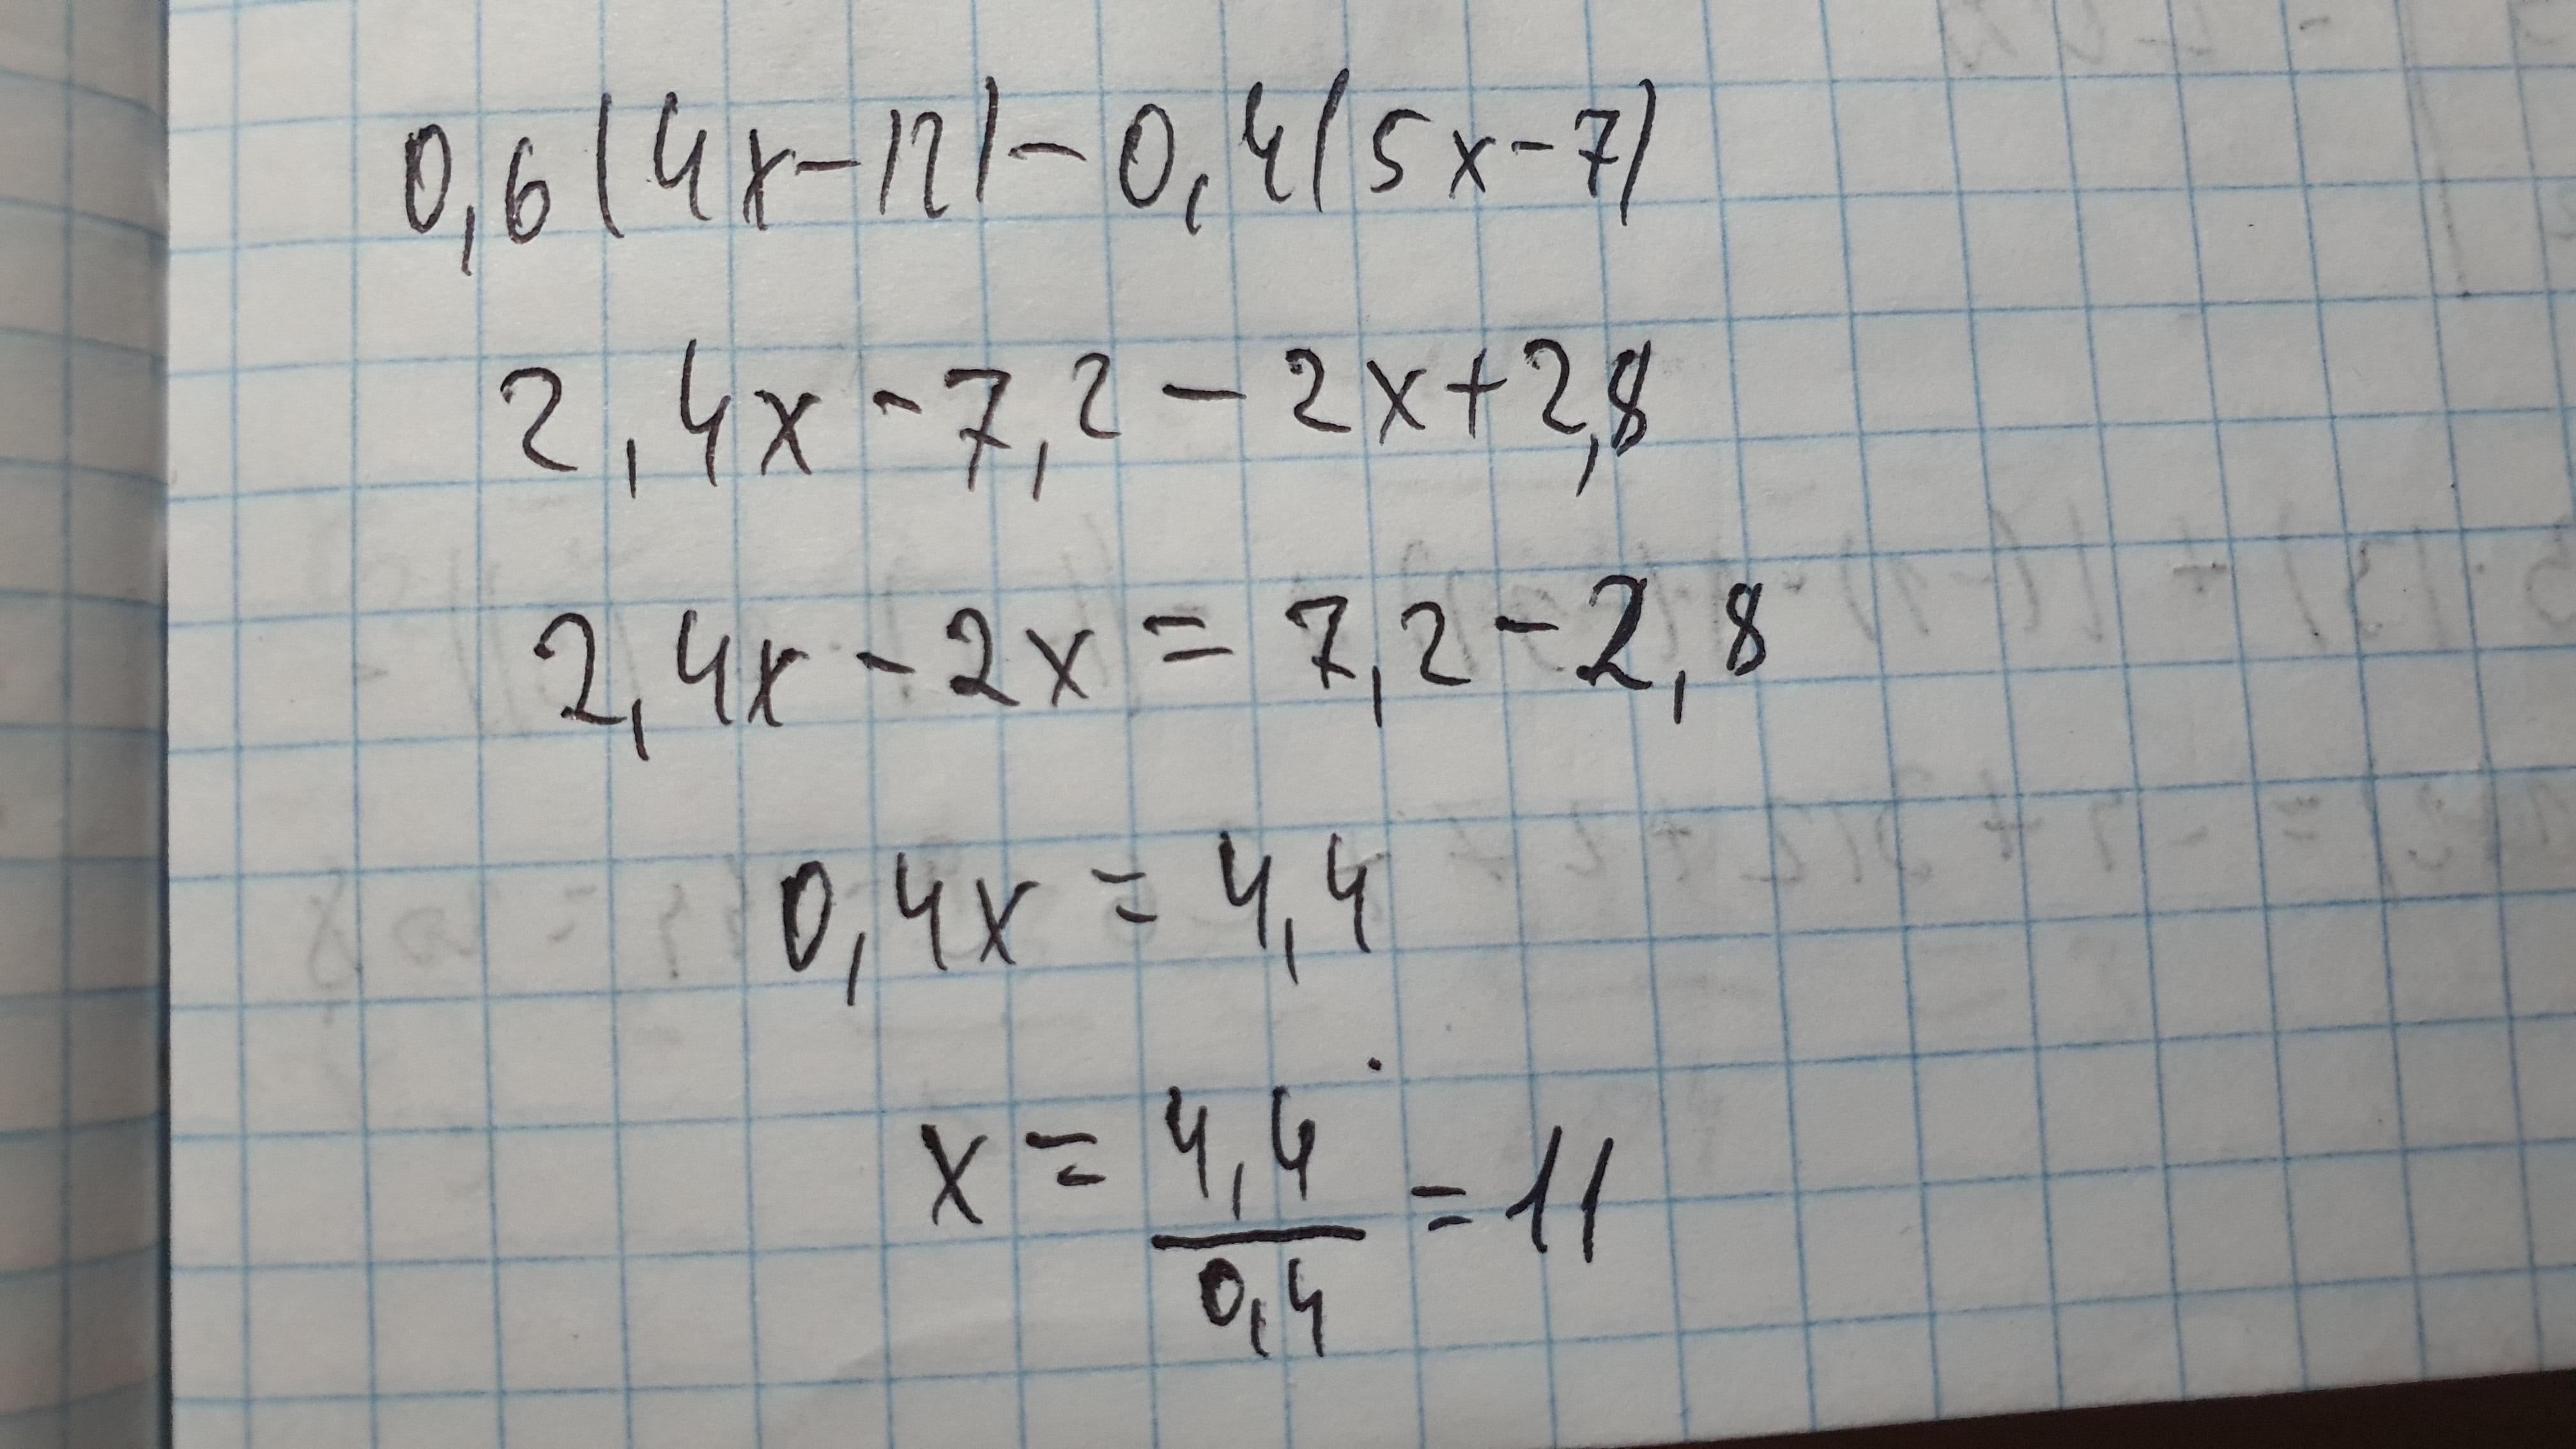 0,6(4x-12)-0,4(5x-7)
2,4x-7,2-2x+2,8
2,4x-2x=7,2-2,8
0,4x=4,4
x=4,4/0,4=11